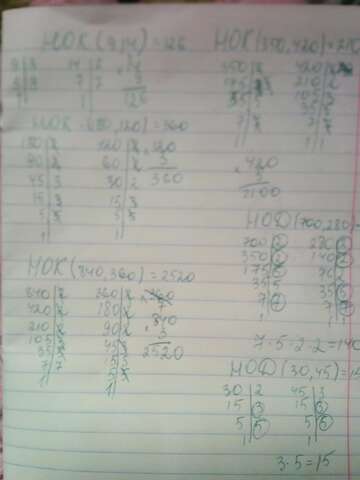 НОК (9,14) = 126
9 | 3
3 | 3
1
14 | 2
7 | 7
1
126
НОК (180,120) = 360
180 | 2
90 | 2
45 | 3
15 | 3
5 | 5
1
120 | 2
60 | 2
30 | 2
15 | 3
5 | 5
1
120
3
360
НОК (840,360) = 2520
840 | 2
420 | 2
210 | 2
105 | 3
35 | 5
7 | 7
1
360 | 2
180 | 2
90 | 2
45 | 3
840
3
2520
НОК (350,420) = 210
350 | 2
420 | 2
210 | 2
105
7
1
420
5
2100
НОД (700,280)
700 | 2
350 | 2
175 | 5
35 | 5
7 | 7
1
280 | 2
140 | 2
70 | 2
35 | 5
7 | 7
1
7·5·2·2=140
НОД (30,45) = 15
30 | 2
15 | 3
5 | 5
1
45 | 3
15 | 3
5 | 5
1
3·5=15